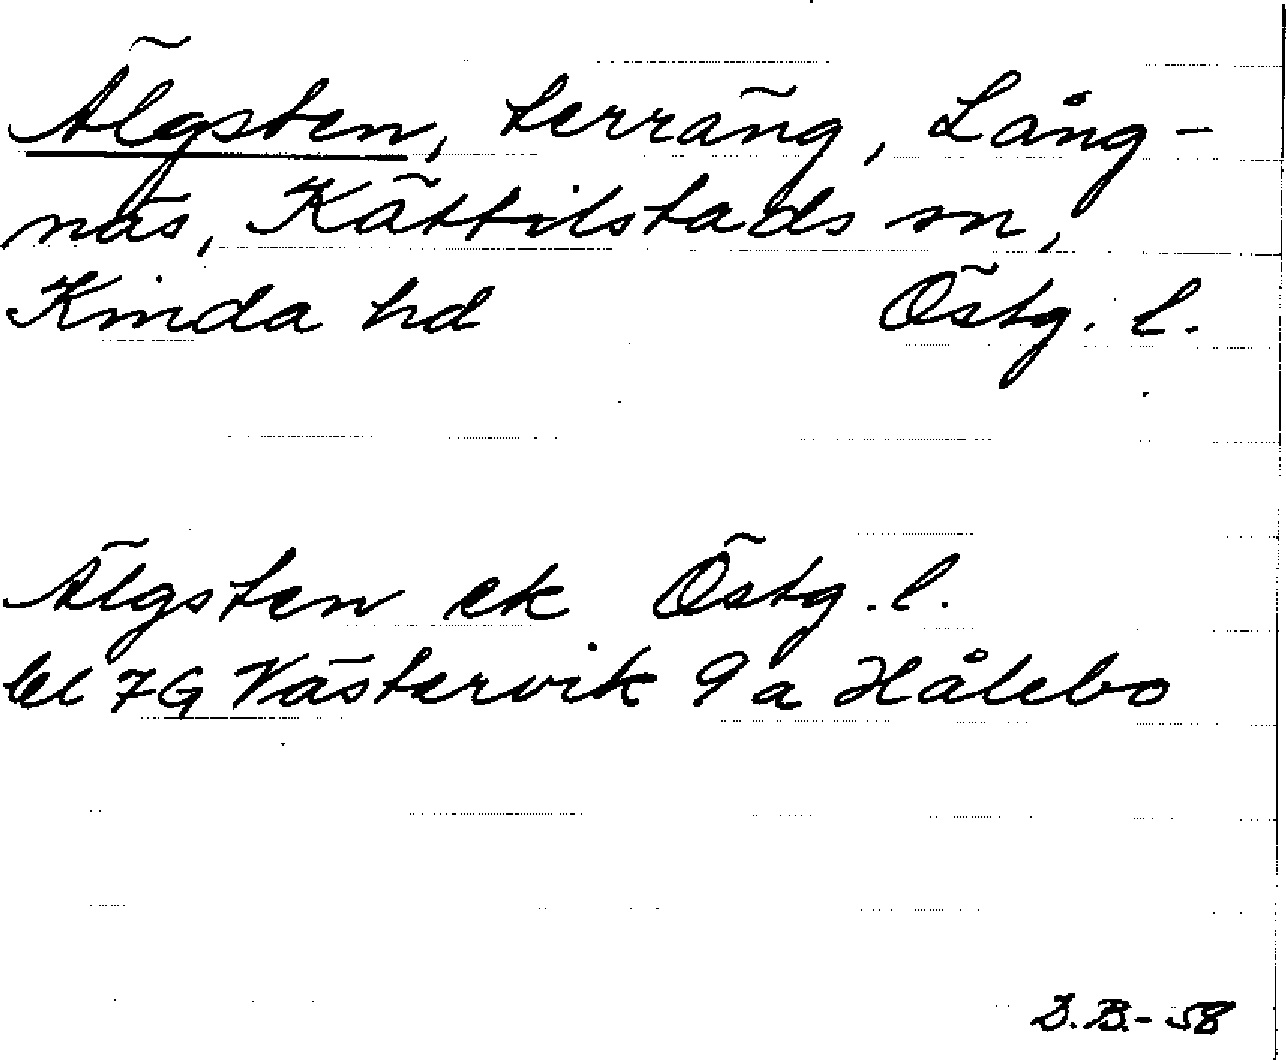 Älgsten, terräng, Lång-
näs, Kättilstads sn,
Kinda hd Östg. l.
Älgsten ek Östg. l.
bl 7G Västervik 9 a Hålebo
D.B.- 58